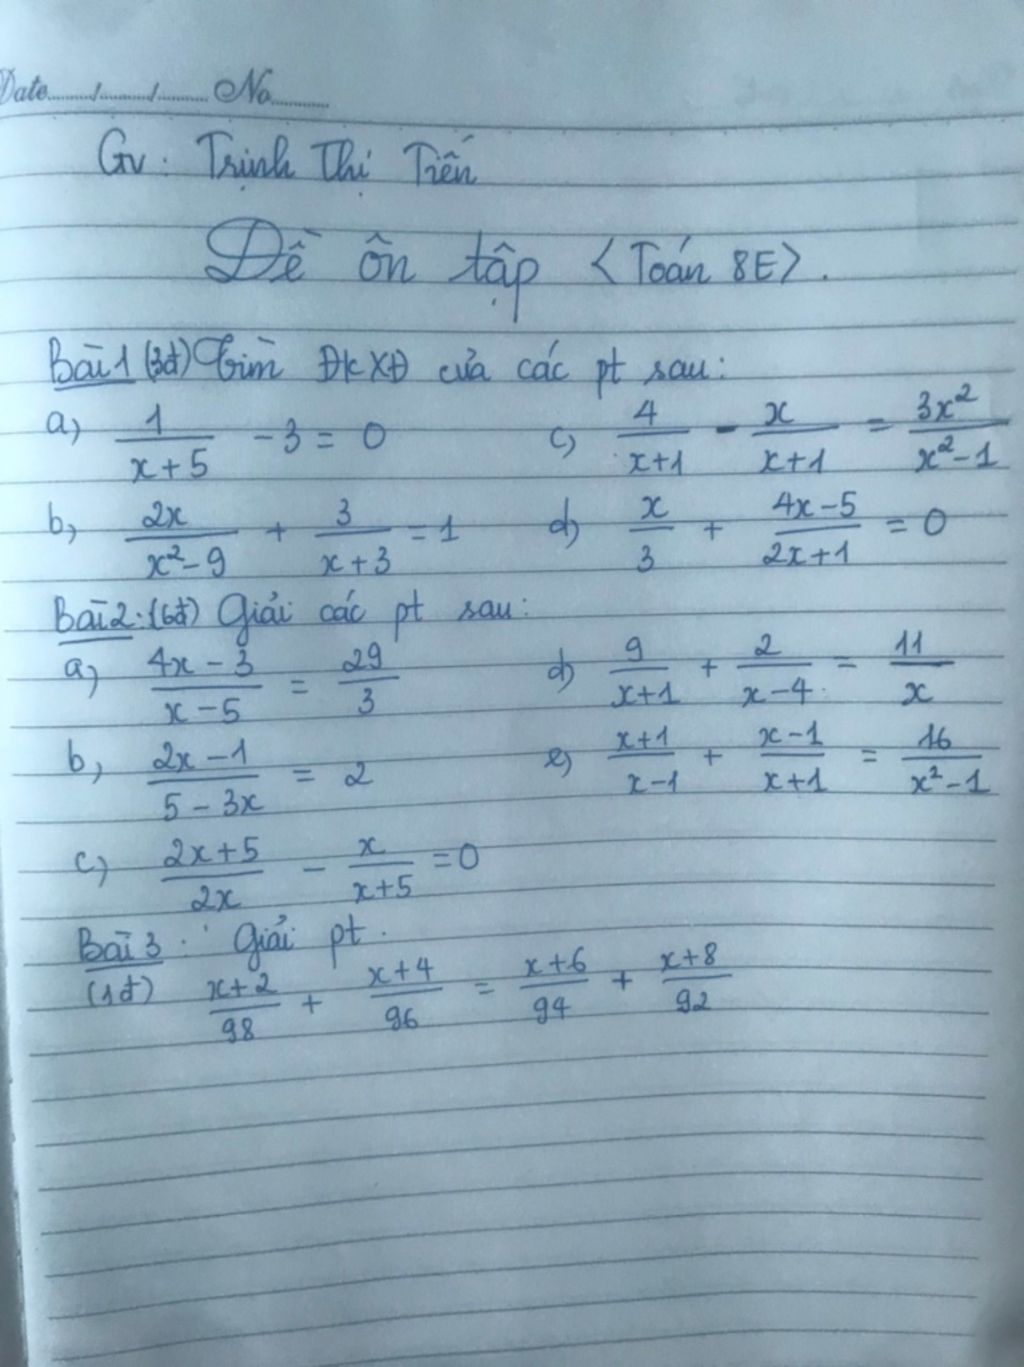 Date......./......./....... No..........
Gv: Trịnh Thị Tiến
Đề ôn tập <Toán 8E>.
Bài 1 (3đ) Tìm ĐkXĐ của các pt sau:
a) 1/(x+5) - 3 = 0
c) 4/(x+1) - x/(x+1) = 3x²/(x²-1)
b) 2x/(x²-9) + 3/(x+3) = 1
d) x/3 + (4x-5)/(2x+1) = 0
Bài 2: (6đ) Giải các pt sau:
a) (4x-3)/(x-5) = 29/3
d) 9/(x+1) + 2/(x-4) = 11/x
b) (2x-1)/(5-3x) = 2
e) (x+1)/(x-1) + (x-1)/(x+1) = 16/(x²-1)
c) (2x+5)/2x - x/(x+5) = 0
Bài 3: Giải pt.
(1đ) (x+2)/98 + (x+4)/96 = (x+6)/94 + (x+8)/92